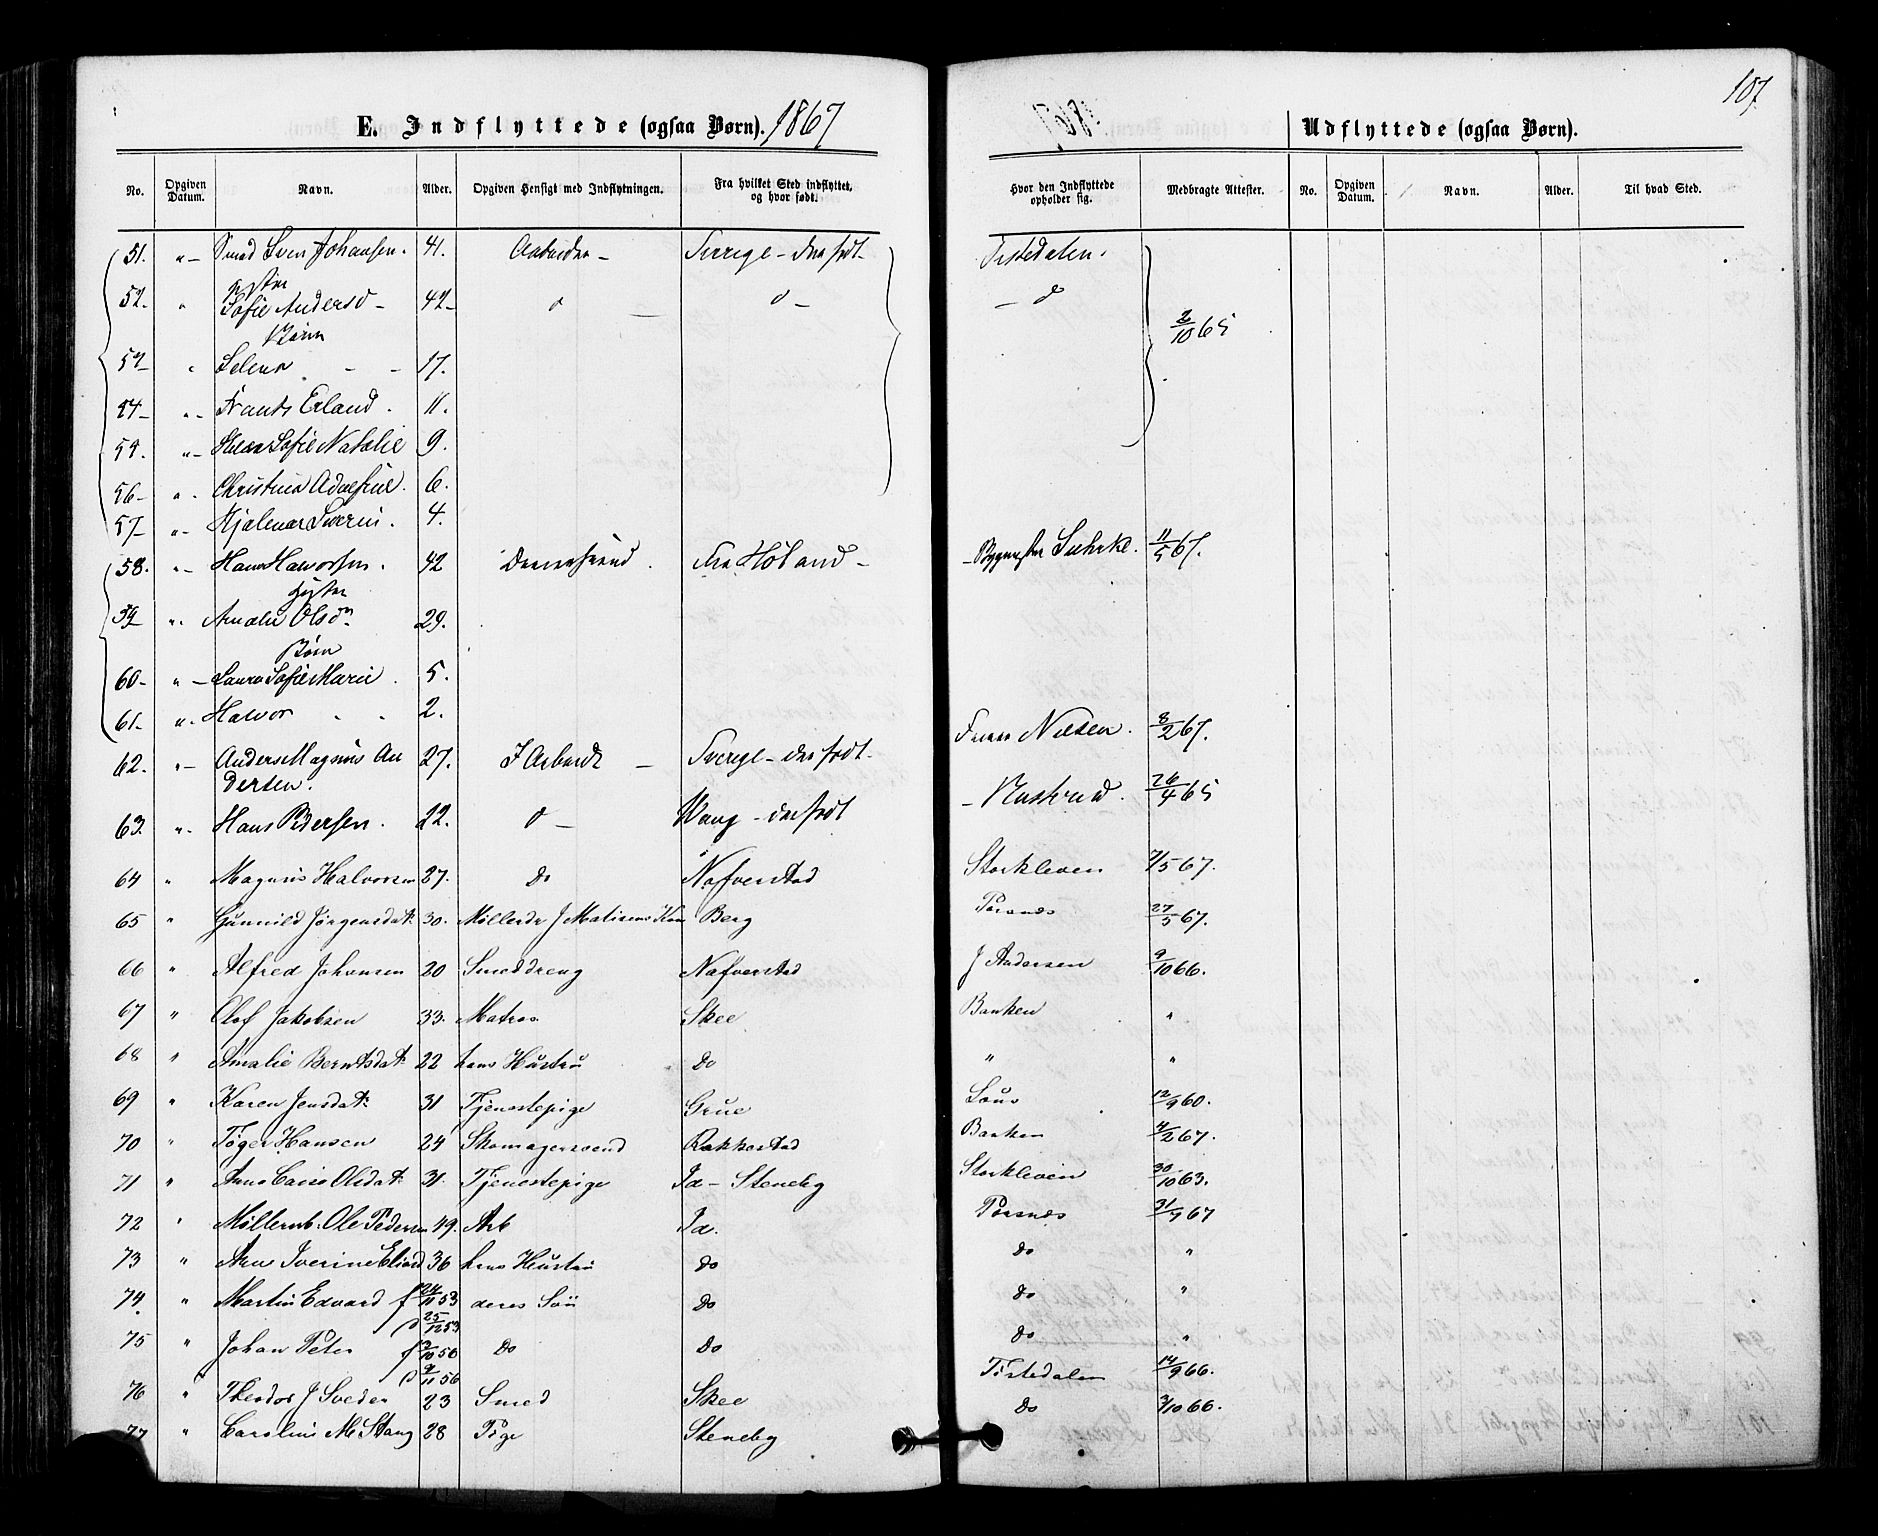 107
E. Indflyttede (ogsaa Børn). 1867
Udflyttede (ogsaa Børn).
No. Opgiven Datum. Navn. Alder. Opgiven Hensigt med Indflytningen. Fra hvilket Sted indflyttet, og hvor født. Hvor den Indflyttede opholder sig. Medbragte Attester. No. Opgiven Datum. Navn. Alder. Til hvad Sted.
51. "- Smed Sven Johansen. 41. Arbeider - Sverige - der født - Tistedalen.
Hustru
52. " Sofie Andersd - 42 - d d - - d 2/10 65
Børn
Selena - - 17.
54 - "- Frants Erland. 11.
"- Sofie Natalie 9.
56 - ". Christina Adolfine. 6.
57 - "- Hjalmar Severin. 4.
58. "- Hans Halvorsen. 42 Fra Høland - - Bygmester Suhrke. 11/5 67.
Hustru
59 ". Amalie Olsdn 29.
Børn
60 - "- Laura Sofie Marie. 5.
61. ". Halvor . . 2.
62. "- Anders Magnus An 27. I Arbeide - Sverige - der født. Nilsen. 8/2 67.
dersen.
63. ". Hans Pedersen. 22. d - Vang - der født - 26/4 65
64 " Magnus Halvorsen 27. Do Nafverstad Storkleven 7/5 67.
65 " Gunnild Jørgensdat: 30. Møllerdr J Matisens Kon Berg Porsnes 27/5 67.
66 " Alfred Johansen 20 Smeddreng Nafverstad J Andersen 9/10 66.
67 " Olof Jakobsen 33. Matros Skee Banken "
68 " Amalie Berntsdat: 22 hans Hustru Do " "
69 " Karen Jensdat: 31 Tjenestepige Grue 12/9 60.
70 " Tøger Hansen 24 Skomagersvend Rakkestad Banken 4/2 67.
71 " Olsdat: 31. Tjenestepige Id - Steneby Storkleven 30/10 63.
72 " Møllerarb. Ole Pedersen 49. Arb Id. Porsnes 67
73 " Iverine 36 hans Hustru Do Do "
74. " Martin Edvard f 11 53 deres Søn Do Do "
d 25/12 53
75 " Johan Peter f 10 56 Do Do Do "
d 9/11 56
76 " Theodor J Sveder 23 Smed Skee Tistedalen 14/9 66.
77 " Caroline M Stang 28 Pige Steneby Do 3/10 66.